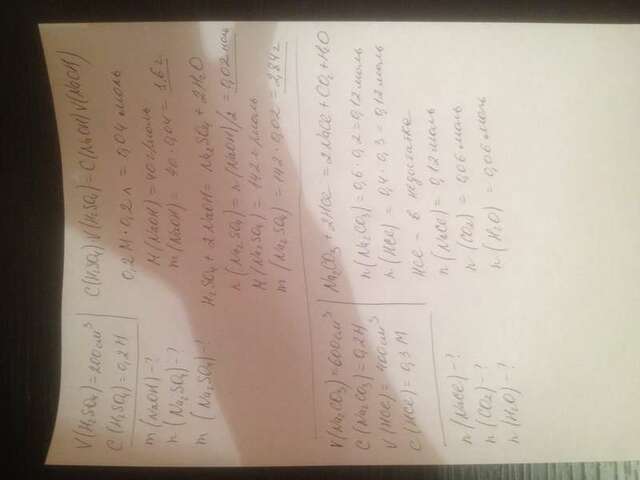 V(H₂SO₄) = 200 см³
C(H₂SO₄) = 0,2 Н
m(NaOH) - ?
n(Na₂SO₄) - ?
m(Na₂SO₄) - ?
C(H₂SO₄)·V(H₂SO₄) = C(NaOH) V(NaOH)
0,2 М · 0,2 л = 0,04 моль
M(NaOH) = 40 г/моль
m(NaOH) = 40 · 0,04 = 1,6 г
H₂SO₄ + 2NaOH = Na₂SO₄ + 2H₂O
n(Na₂SO₄) = n(NaOH)/2 = 0,02 моль
M(Na₂SO₄) = 142 г/моль
m(Na₂SO₄) = 142 · 0,02 = 2,84 г
V(Na₂CO₃) = 600 см³
C(Na₂CO₃) = 0,2 Н
V(HCl) = 400 см³
C(HCl) = 0,3 М
n(NaCl) - ?
n(CO₂) - ?
n(H₂O) - ?
Na₂CO₃ + 2HCl = 2NaCl + CO₂ + H₂O
n(Na₂CO₃) = 0,6 · 0,2 = 0,12 моль
n(HCl) = 0,4 · 0,3 = 0,12 моль
HCl - в недостатке
n(NaCl) = 0,12 моль
n(CO₂) = 0,06 моль
n(H₂O) = 0,06 моль